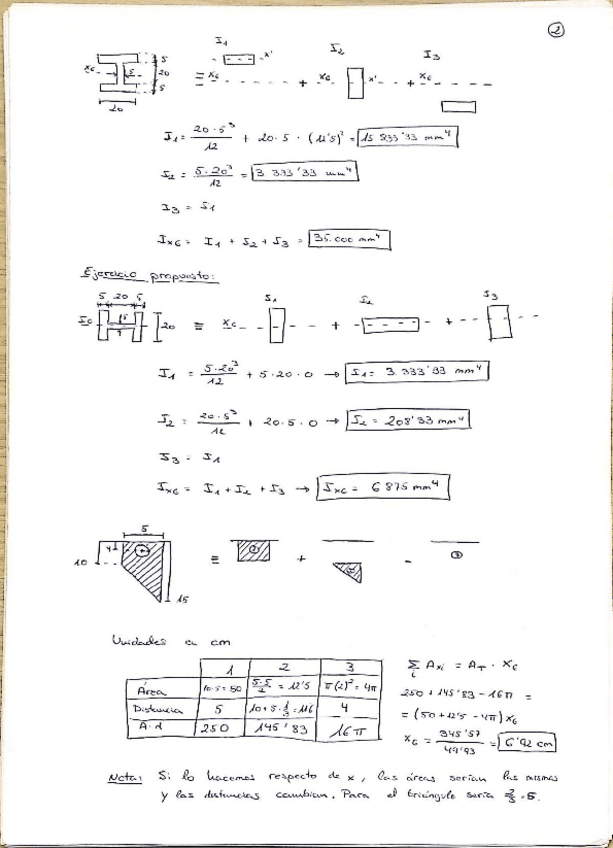 2
I1 I2 I3
5
XG 5 20 ≡ XG x' + XG x' + XG
5
20
I1 = 20·5³/12 + 20·5·(12'5)² = 15 833'33 mm⁴
I2 = 5·20³/12 = 3.333'33 mm⁴
I3 = I1
IXG = I1 + I2 + I3 = 35.000 mm⁴
Ejercicio propuesto:
5 20 5 I1 I2 I3
5 20 ≡ XG + +
I1 = 5·20³/12 + 5·20·0 → I1 = 3.333'33 mm⁴
I2 = 20·5³/12 + 20·5·0 → I2 = 208'33 mm⁴
I3 = I1
IXG = I1 + I2 + I3 → IXG = 6875 mm⁴
5
10 4 ≡ 1 + 2 - 3
15
Unidades a cm
1 2 3
Área 10·5=50 5·5/2 = 12'5 π(2)² = 4π
Distancia 5 10+5·1/3=11'6 4
A·d 250 145'83 16π
Σ Axi = AT · XG
i
250 + 145'83 - 16π =
= (50 + 12'5 - 4π) XG
XG = 345'57/49'93 = 6'92 cm
Nota: Si lo hacemos respecto de x, las áreas serían las mismas
y las distancias cambian. Para el triángulo sería 2/3·5.